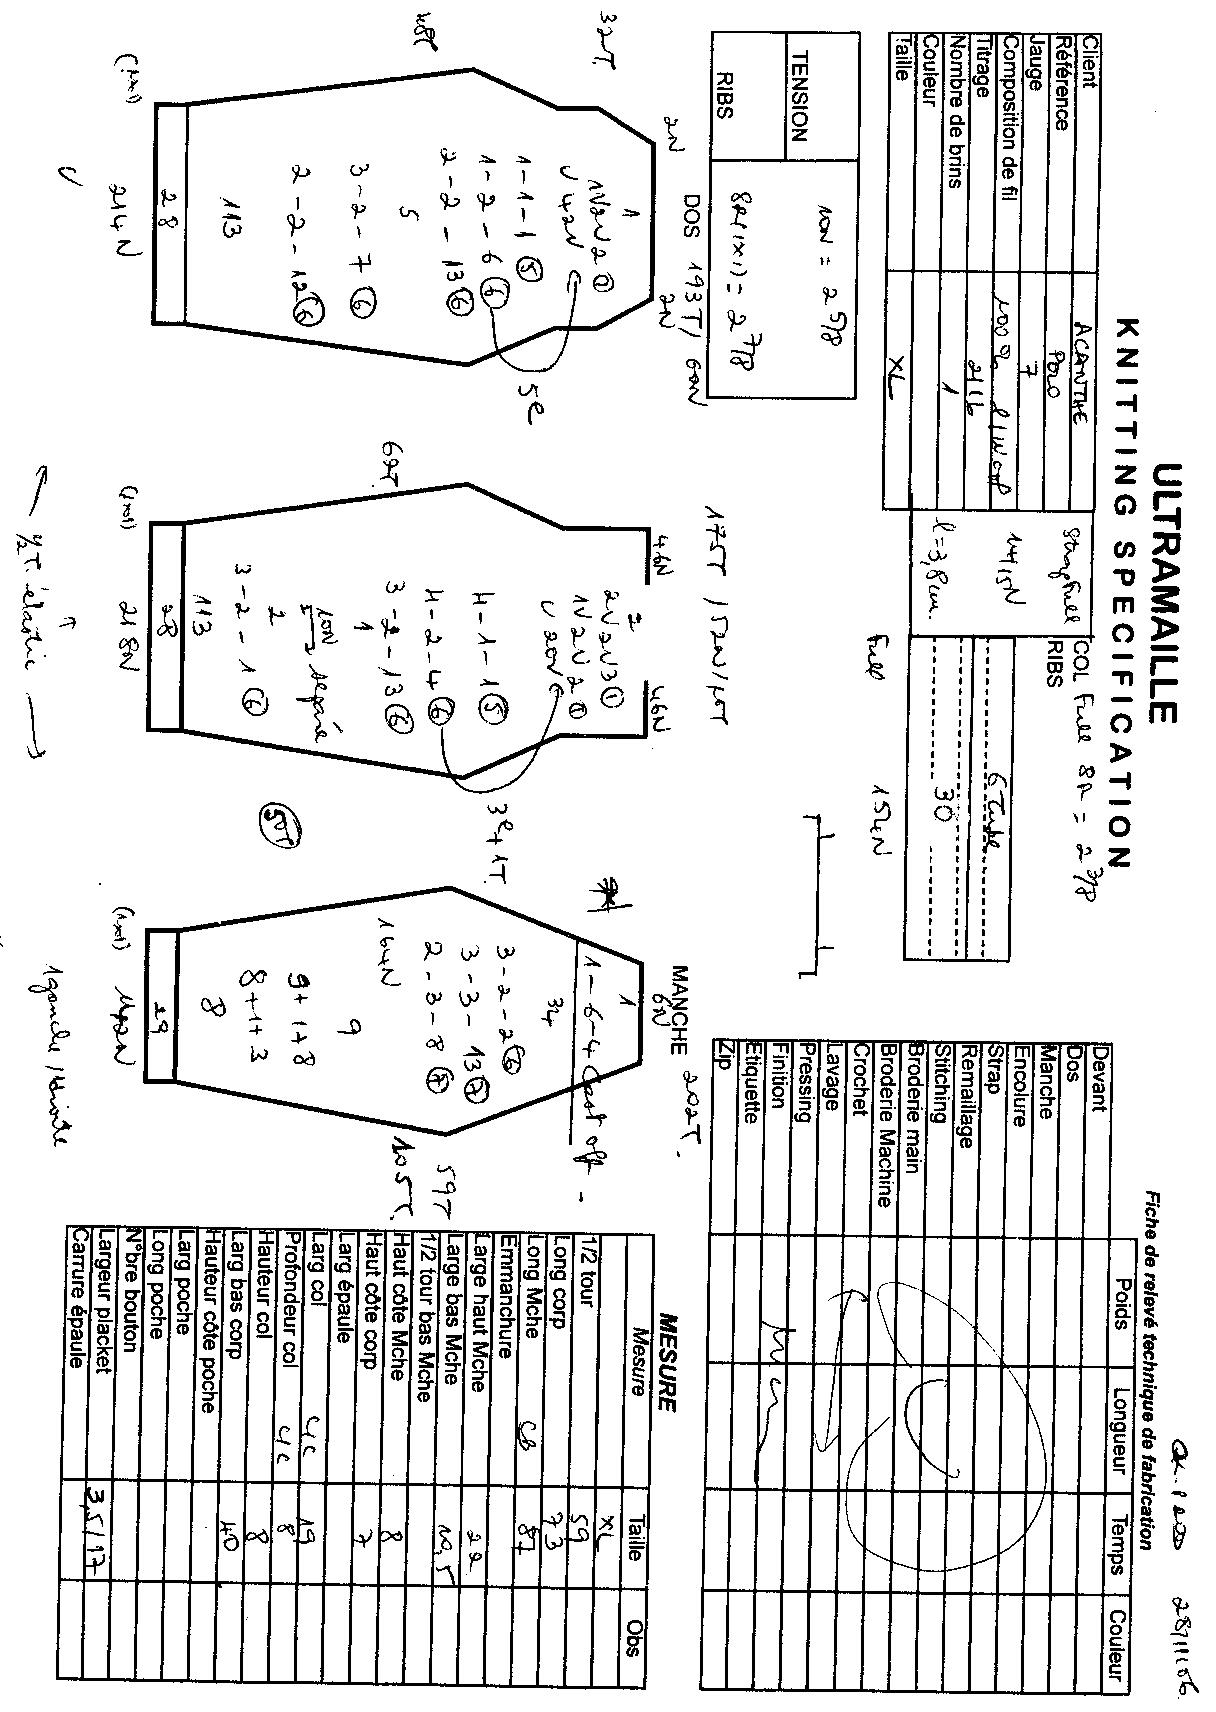 ULTRAMAILLE
KNITTING SPECIFICATION
Client ACANTHE
Référence POLO
Jauge 7
Composition de fil 100%
Titrage 2/16
Nombre de brins 1
Couleur
Taille XL
Strap Full
14/15N
l=3,8cm.
COL Full 8R = 2 3/8
RIBS
6 Tube
30
Full 154N
TENSION
10N = 2 5/8
RIBS
8R(1x1) = 2 7/8
DOS 193T/60N
2N 2N
32T.
1
1V2N2 ①
U42N
1-1-1 ⑤
1-2-6 ⑥
2-2-13 ⑥
5
3-2-7 ⑥
2-2-12 ⑥
113
28
(1x1)
214N
U
48T
5e
175T / 52N/
46N 46N
2
2V2N3 ①
1V2N2 ①
U20N
4-1-1 ⑤
4-2-4 ⑥
3-2-13 ⑥
1
10N séparé
2
3-2-1 ⑥
113
28
(1x1)
218N
69T.
3e+1T.
50T
½T. élastic
MANCHE 202T.
6N
1
1-6-4 Cast off -
34
3-2-2 ⑥
3-3-13 ⑦
2-3-8 ⑦
164N
9
9+1+8
8+1+3
8
29
(1x1)
112N
59T
105T.
1 gauche / 1 droite
OK.
28/11/06.
Fiche de relevé technique de fabrication
Poids Longueur Temps Couleur
Devant
Dos
Manche
Encolure
Strap
Remaillage
Stitching
Broderie main
Broderie Machine
Crochet
Lavage
Pressing
Finition
Etiquette
Zip
MESURE
Mesure Taille Obs
XL
1/2 tour 59
Long corp 73
Long Mche CB 87
Emmanchure
Large haut Mche 22
Large bas Mche 10,5
1/2 tour bas Mche
Haut côte Mche 8
Haut côte corp 7
Larg épaule
Larg col 4c 19
Profondeur col 4c 8
Hauteur col 8
Larg bas corp 40
Hauteur côte poche
Larg poche
Long poche
N°bre bouton
Largeur placket 3,5/17
Carrure épaule